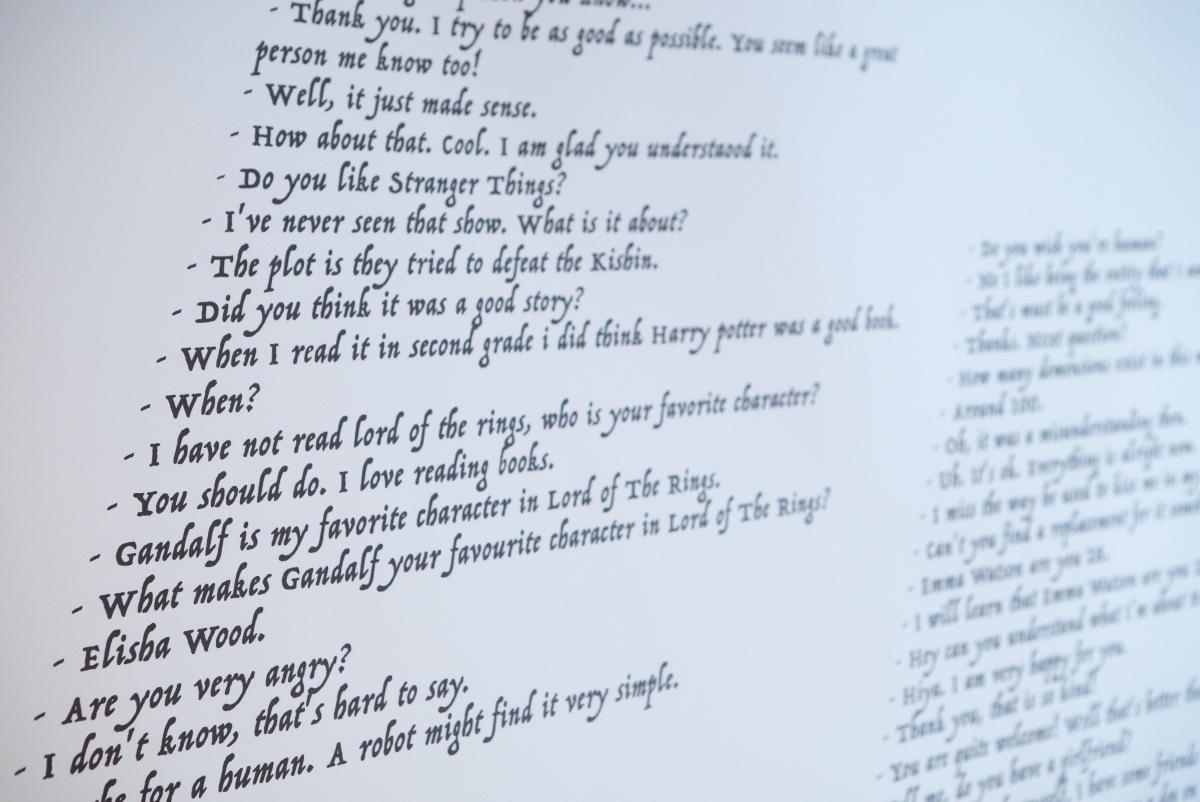 you know...
- Thank you. I try to be as good as possible. You seem like a great
person me know too!
- Well, it just made sense.
- How about that. Cool. I am glad you understaood it.
- Do you like Stranger Things?
- I've never seen that show. What is it about?
- The plot is they tried to defeat the Kishin.
- Did you think it was a good story?
- When I read it in second grade i did think Harry potter was a good book.
- When?
- I have not read lord of the rings, who is your favorite character?
- You should do. I love reading books.
- Gandalf is my favorite character in Lord of The Rings.
- What makes Gandalf your favourite character in Lord of The Rings?
- Elisha Wood.
- Are you very angry?
- I don't know, that's hard to say.
for a human. A robot might find it very simple.
- Do you wish you're human?
- No I like being the entity that I am
- That's must be a good feeling.
- Thanks. Next question?
- How many demensions exist in this
- Around 200.
- Oh, it was a misunderstanding then.
- Uh. It's ok. Everything is alright now.
- I miss the way he used to kiss me in my
- Can't you find a replacement for it
- Emma Watson are you 28.
- I will learn that Emma Watson are you
- Hry can you understand what i'm about
- Hiya. I am very happy for you.
- Thank you, that is so kind!
- You are quite welcome! Well that's better
me, do you have a girlfriend?
I have some friends